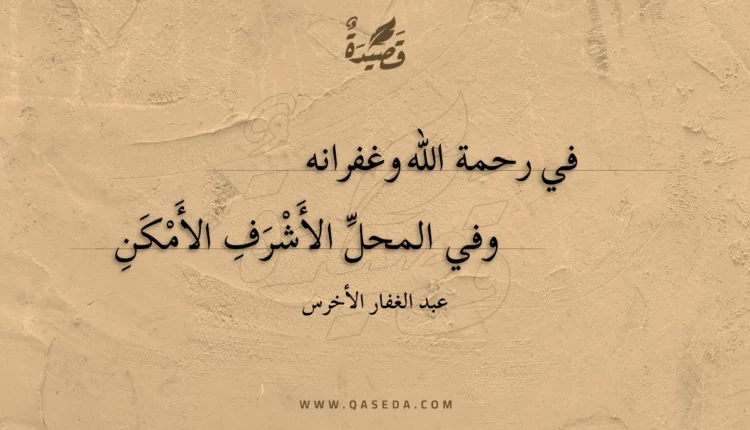 قَصِيدَةٌ
في رحمة الله وغفرانه
وفي المحلِّ الأَشْرَفِ الأَمْكَنِ
عبد الغفار الأخرس
WWW.QASEDA.COM